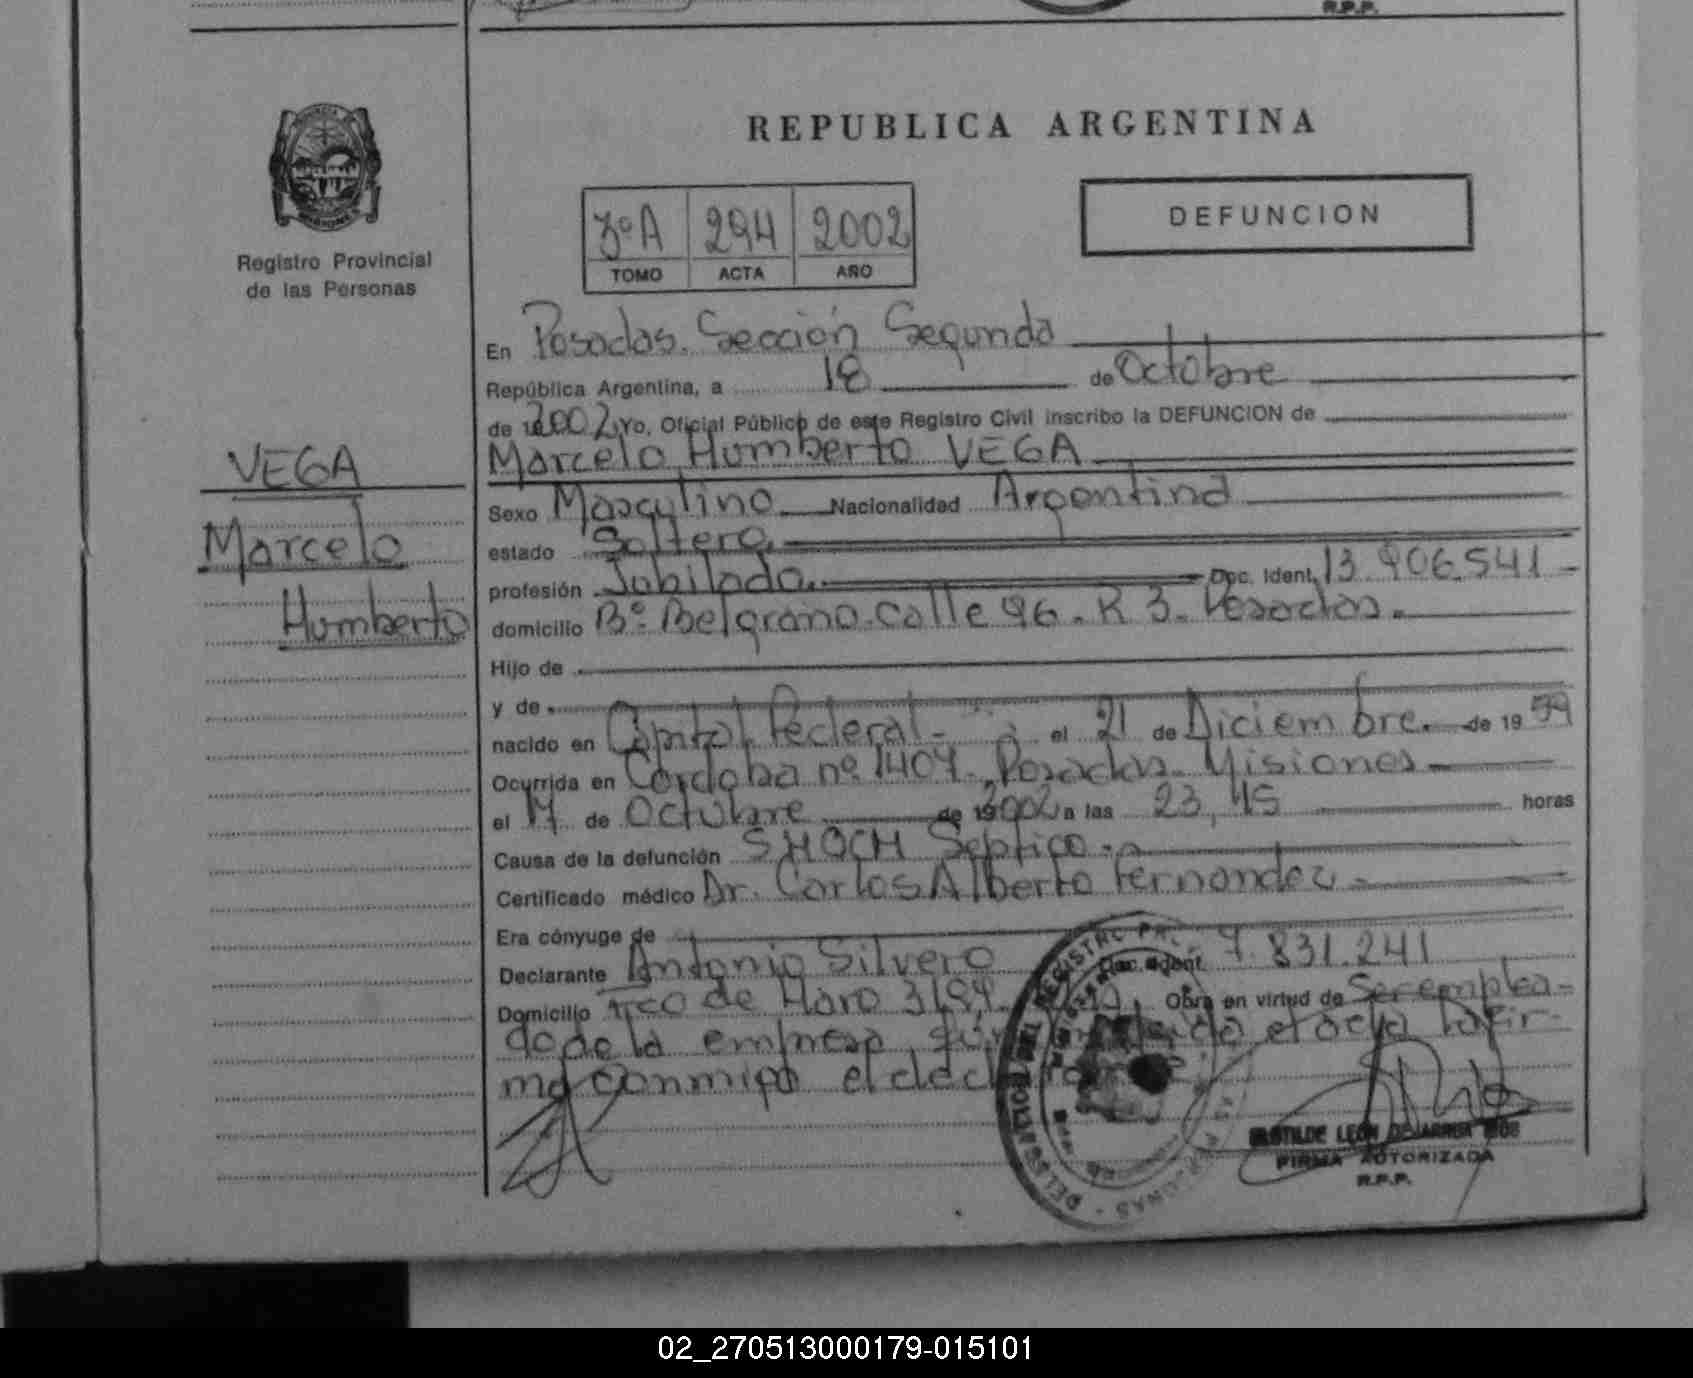 R.P.P.
REPUBLICA ARGENTINA
Registro Provincial
de las Personas
3ºA 294 2002
TOMO ACTA AÑO
DEFUNCION
En Posadas. Sección Segunda
República Argentina, a 18 de Octubre
de 2002 Yo, Oficial Público de este Registro Civil inscribo la DEFUNCION de
Marcelo Humberto VEGA
VEGA
Marcelo
Humberto
Sexo Masculino Nacionalidad Argentina
estado Soltero
profesión Jubilado. Doc. Ident. 13.906.541
domicilio Bº Belgrano. Calle 96. R 3. Posadas.
Hijo de
y de
nacido en Capital Federal el 21 de Diciembre de 19 59
Ocurrida en Córdoba nº 1407. Posadas. Misiones
el 17 de Octubre de 2002 a las 23,45 horas
Causa de la defunción SHOCH Septico.
Certificado médico Dr. Carlos Alberto Fernandez
Era cónyuge de
Declarante Antonio Silvero Doc. Ident. 7.831.241
Domicilio de Haro Obra en virtud de Ser emplea-
do de la empresa, el acta la fir-
ma conmigo el
FIRMA AUTORIZADA
R.P.P.
02_270513000179-015101